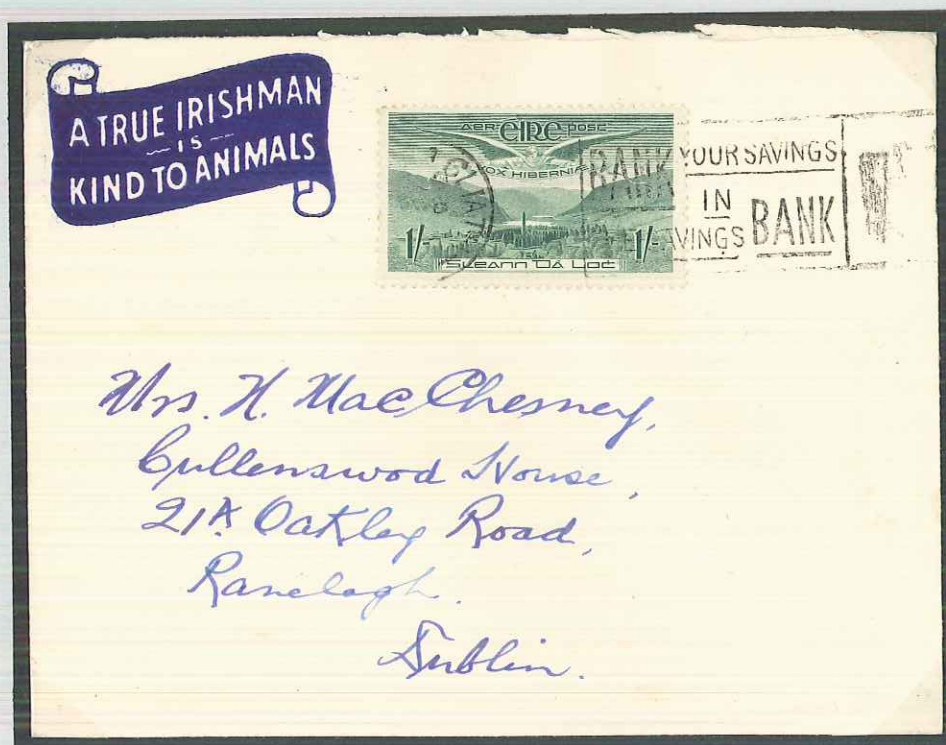 A TRUE IRISHMAN
IS
KIND TO ANIMALS
AER ÉIRE POST
VOX HIBERNIAE
1/- 1/-
Gleann Dá Loċ
BANK YOUR SAVINGS
IN
SAVINGS BANK
Mrs. H. MacChesney,
Cullenswod House,
21A Oakley Road,
Ranelagh.
Dublin.